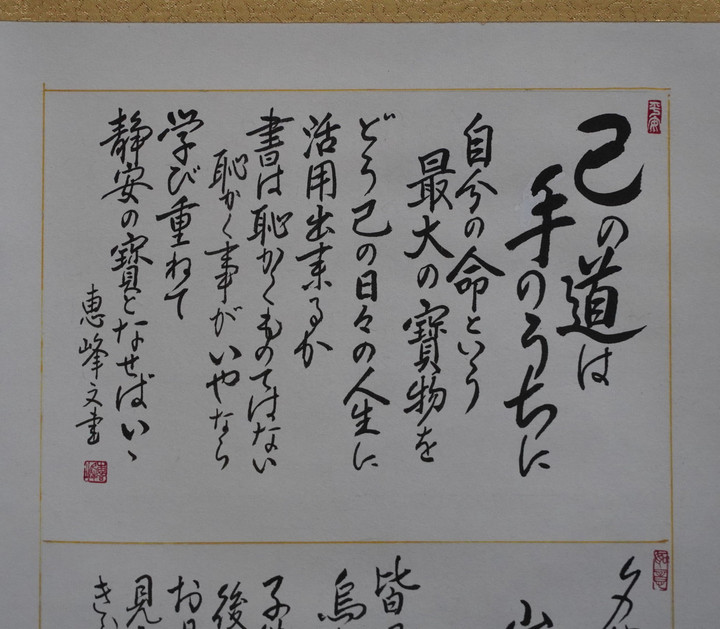 己の道は
手のうちに
自分の命という
最大の寶物を
どう己の日々の人生に
活用出来るか
書は恥かくものではない
恥かく事がいやなら
学び重ねて
静安の寶となせばいゝ
恵峰文書
夕
皆
烏
子
後
お
見
き